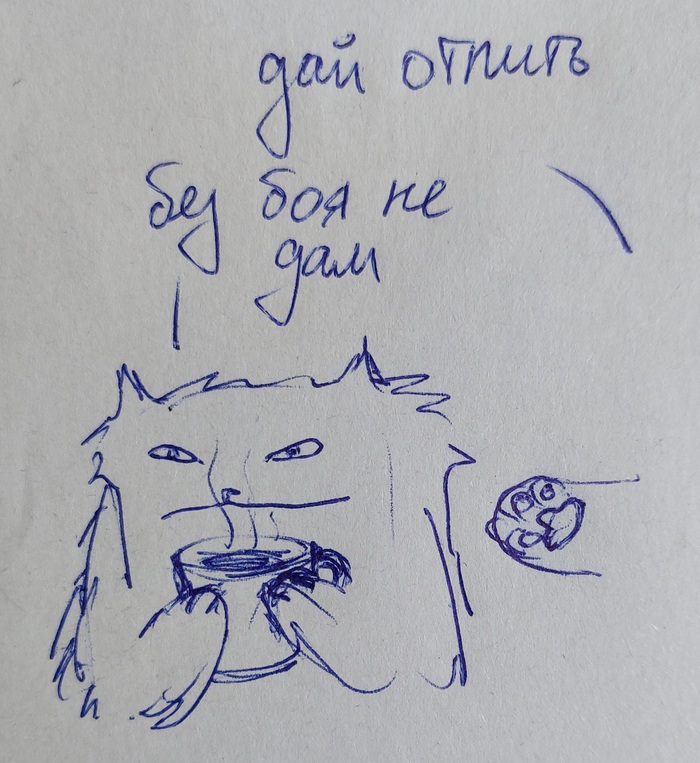 дай отпить
без боя не
дам